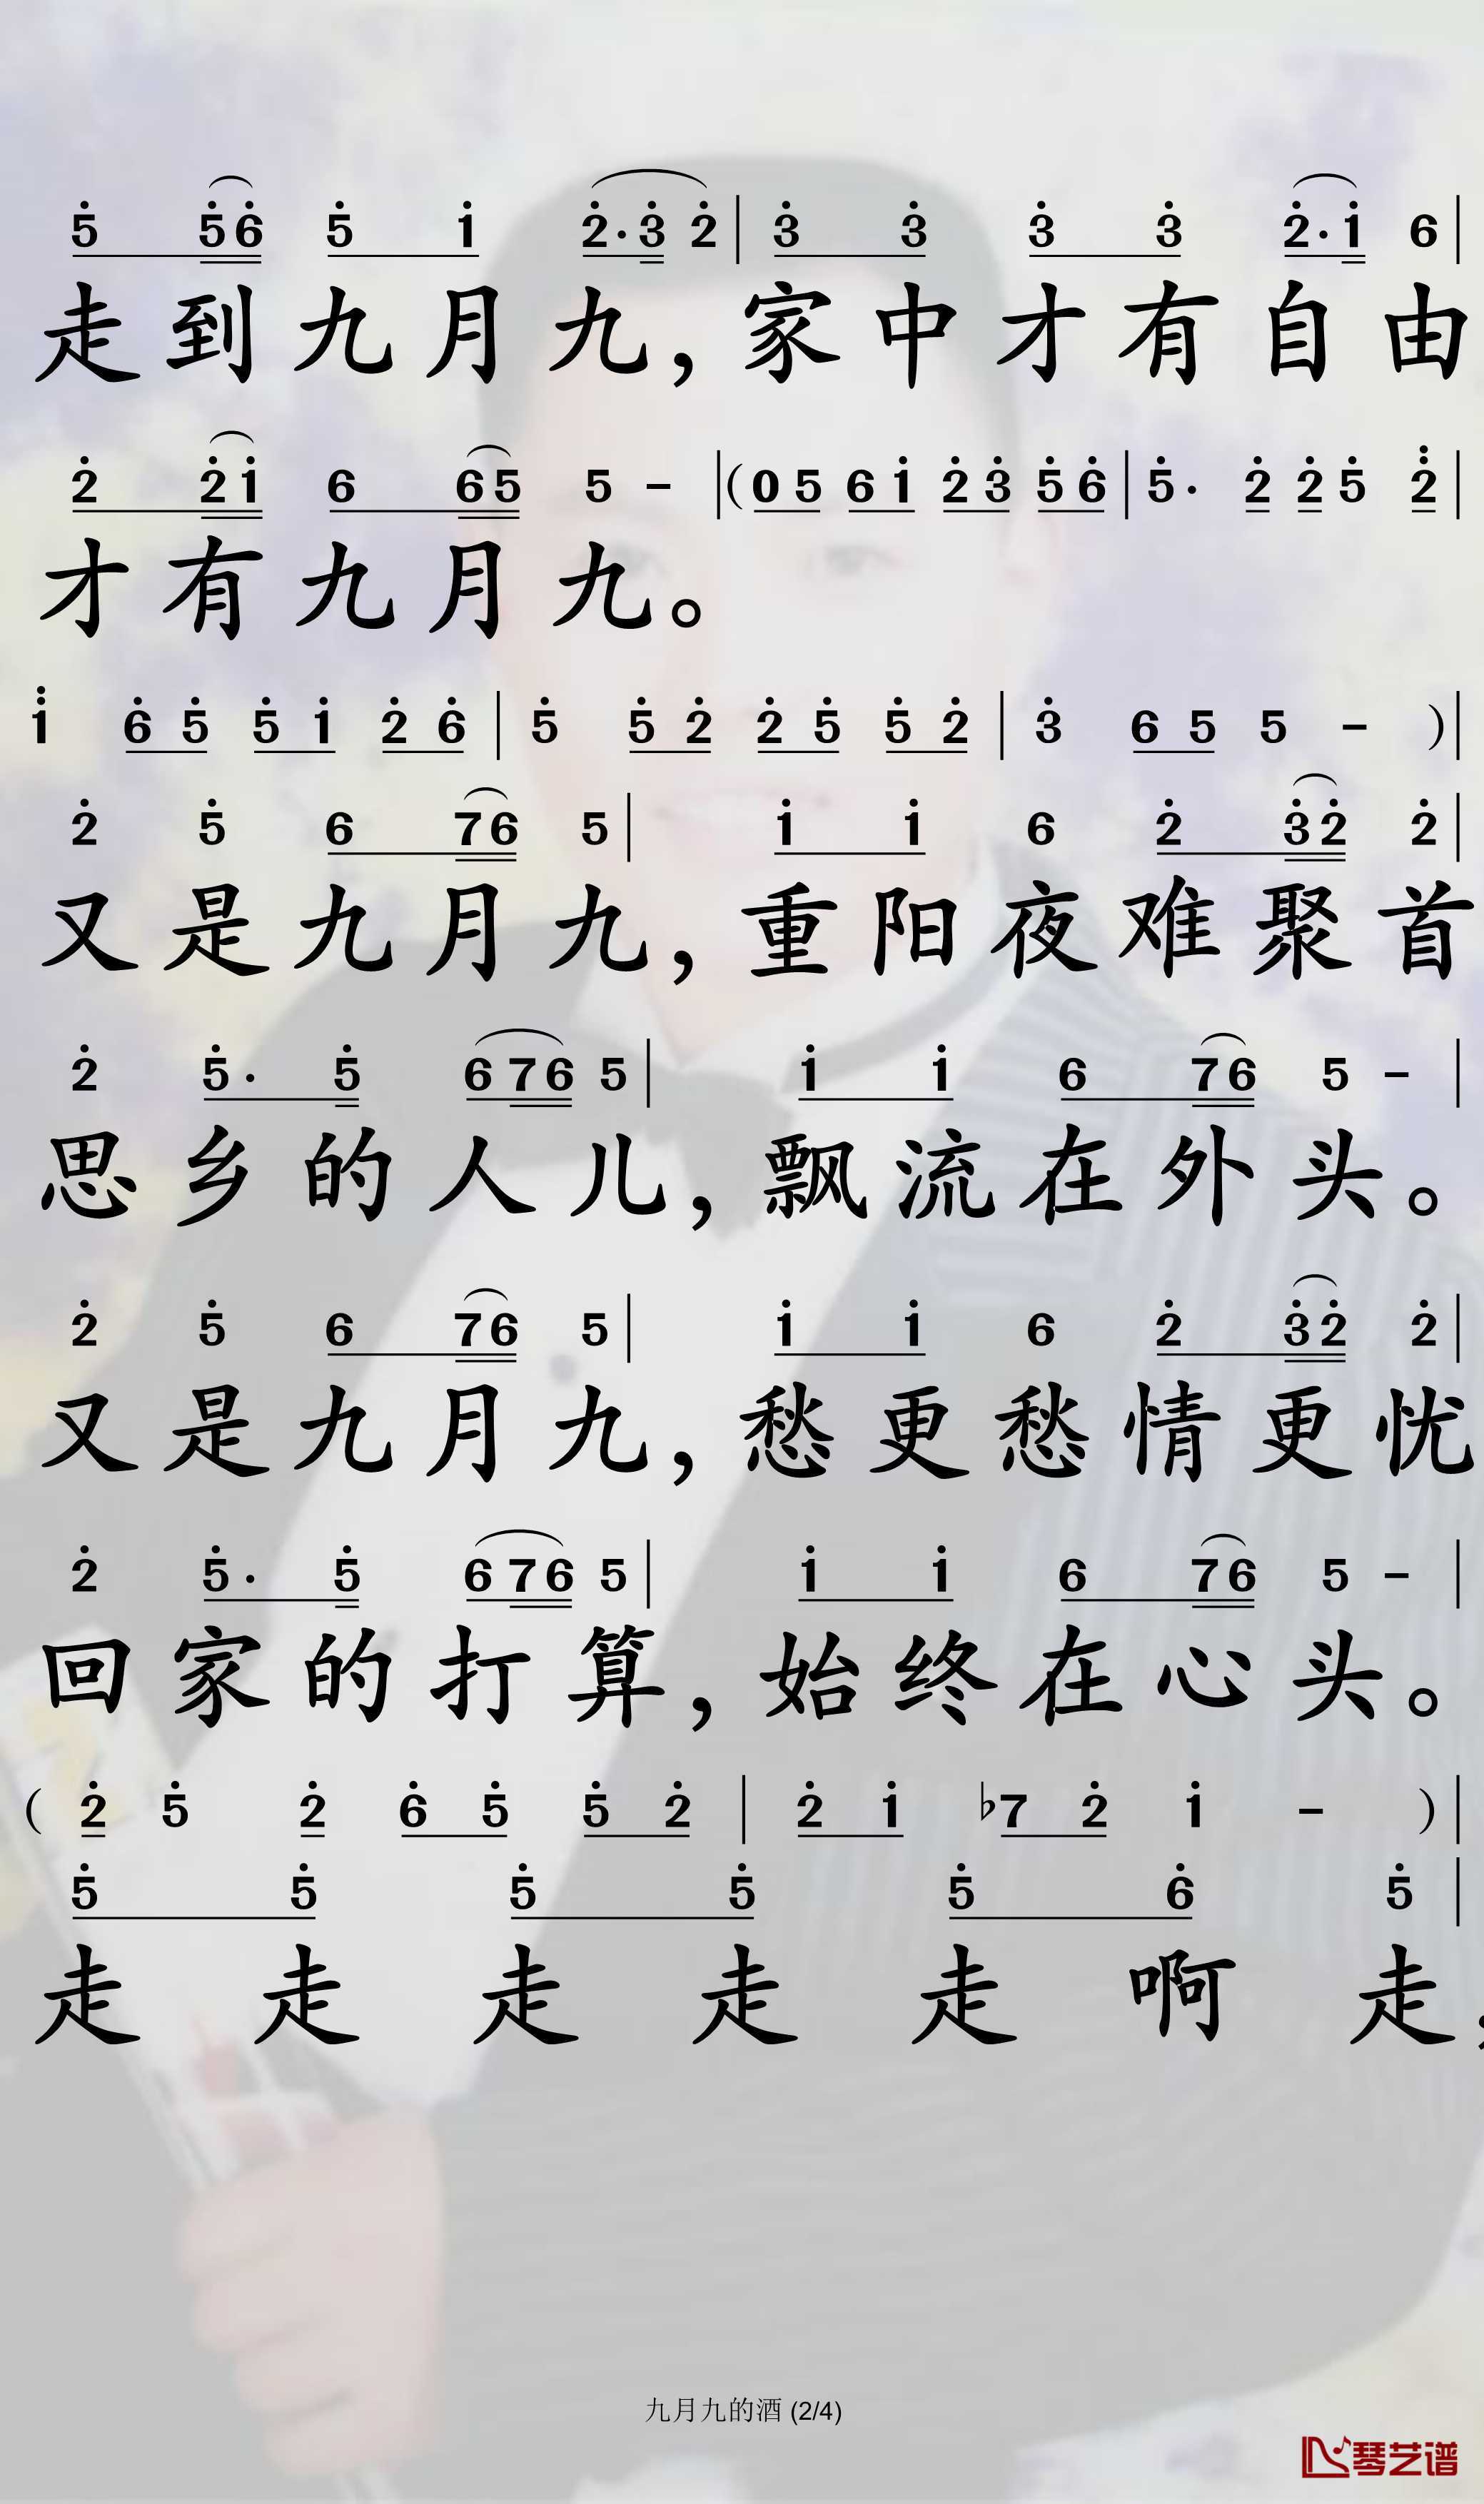 5 5 6 5 1 2· 3 2 | 3 3 3 3 2· 1 6 |
走到九月九，家中才有自由
2 2 1 6 6 5 5 – |(0 5 6 1 2 3 5 6 | 5· 2 2 5 2 |
才有九月九。
1 6 5 5 1 2 6 | 5 5 2 2 5 5 2 | 3 6 5 5 – )|
2 5 6 7 6 5 | 1 1 6 2 3 2 2 |
又是九月九，重阳夜难聚首
2 5· 5 6 7 6 5 | 1 1 6 7 6 5 – |
思乡的人儿，飘流在外头。
2 5 6 7 6 5 | 1 1 6 2 3 2 2 |
又是九月九，愁更愁情更忧
2 5· 5 6 7 6 5 | 1 1 6 7 6 5 – |
回家的打算，始终在心头。
( 2 5 2 6 5 5 2 | 2 1 ♭7 2 1 – )|
5 5 5 5 5 6 5 |
走走走走走啊走，
九月九的酒 (2/4)
琴艺谱